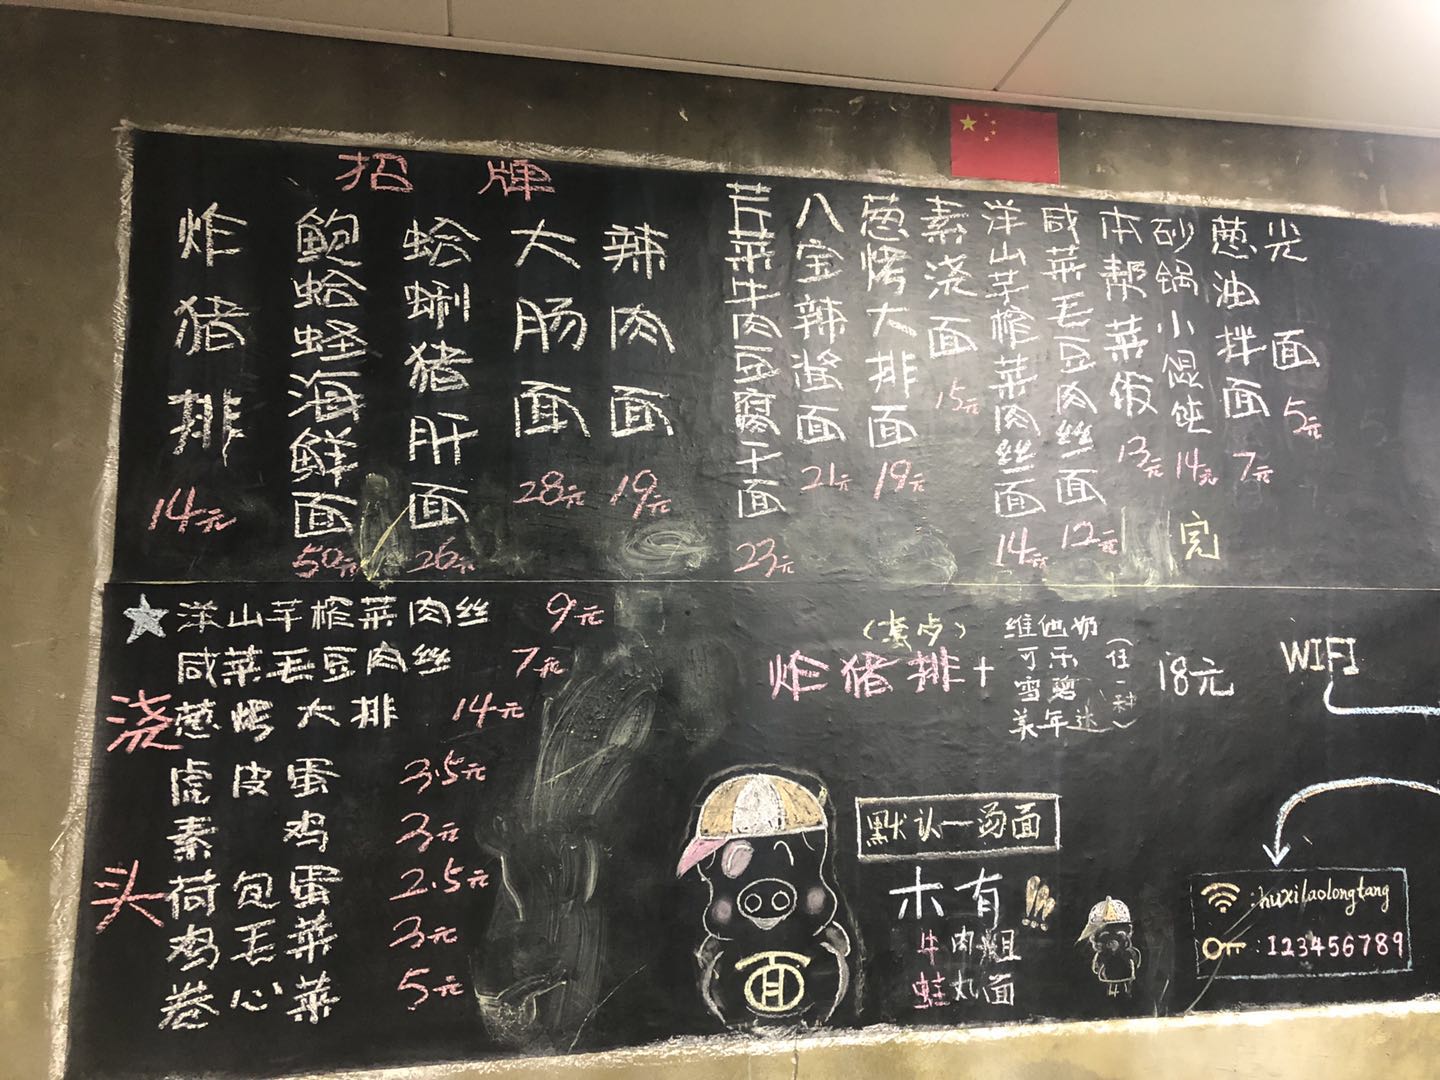 招牌
炸猪排
14元
鲍蛤蛏海鲜面
50元
蛤蜊猪肝面
26元
大肠面
28元
辣肉面
19元
芹菜牛肉豆腐干面
23元
八宝辣酱面
21元
葱烤大排面
19元
素浇面
15元
洋山芋榨菜肉丝面
14元
咸菜毛豆肉丝面
12元
本帮菜饭
13元
砂锅小馄饨
14元
完
葱油拌面
7元
光面
5元
浇头
洋山芋榨菜肉丝 9元
咸菜毛豆肉丝 7元
葱烤大排 14元
虎皮蛋 3.5元
素鸡 3元
荷包蛋 2.5元
鸡毛菜 3元
卷心菜 5元
炸猪排+
维他奶
可乐
雪碧
美年达
(任一种)
18元
默认—汤面
木有!!!
牛肉
蛙
面
面
WIFI
: huxilaolongtang
: 123456789